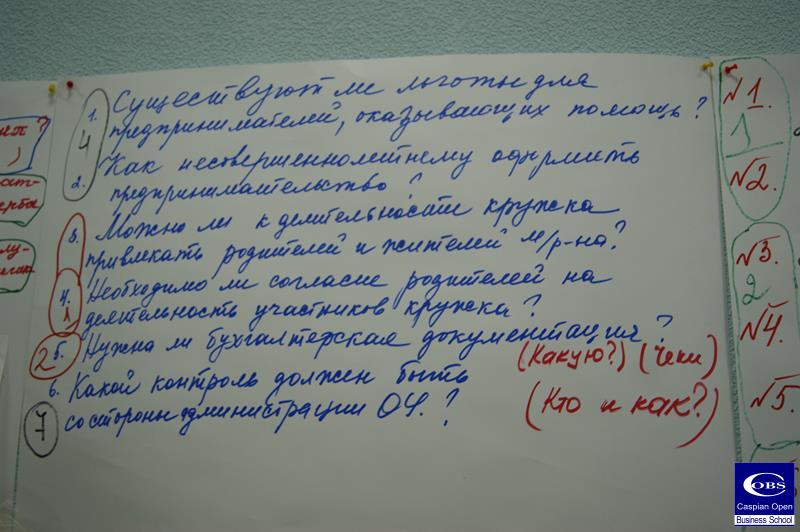 1. Существуют ли льготы для
предпринимателей, оказывающих помощь?
4
2. Как несовершеннолетнему оформить
предпринимательство?
3. Можно ли к деятельности кружка
привлекать родителей и жителей м/р-на?
4. Необходимо ли согласие родителей на
1 деятельность участников кружка?
2 5. Нужна ли бухгалтерская документация?
(Какую?) (чеки)
6. Какой контроль должен быть
7 со стороны администрации ОУ.?
(Кто и как?)
№1.
№2.
№3.
2
№4.
№5.
COBS
Caspian Open
Business School